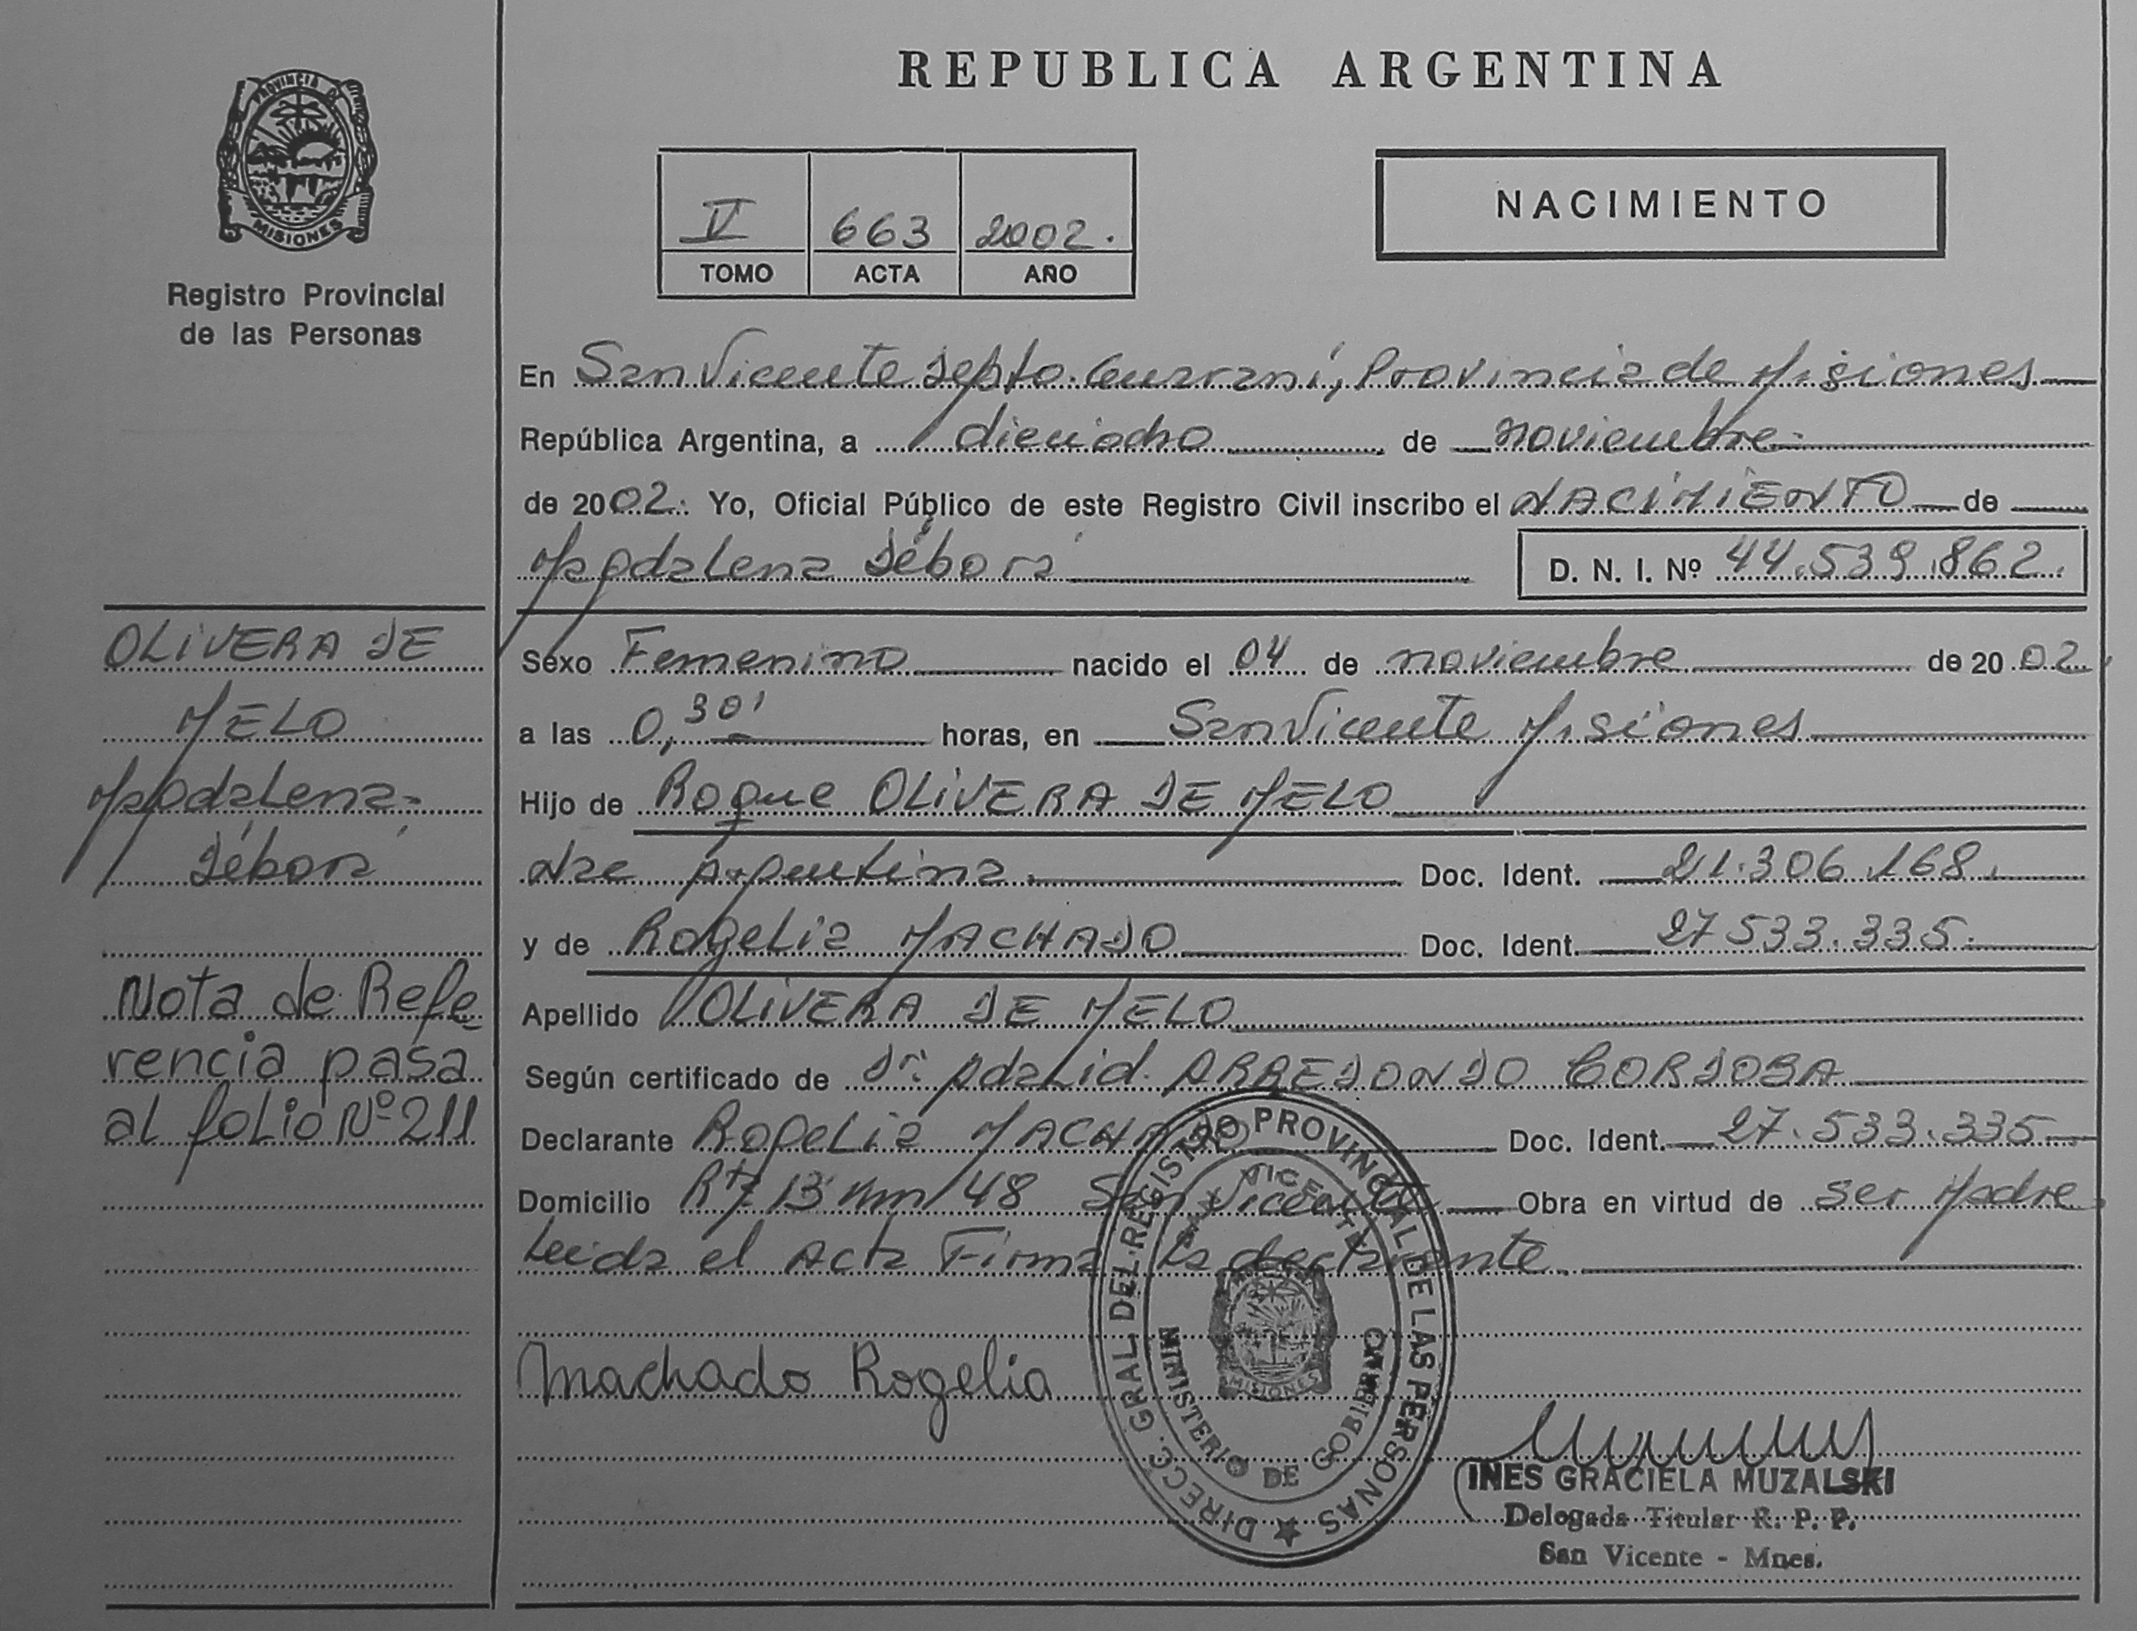 REPUBLICA ARGENTINA
PROVINCIA DE
MISIONES
Registro Provincial
de las Personas
V 663 2002.
TOMO ACTA AÑO
NACIMIENTO
En San Vicente Depto. Guaraní, Provincia de Misiones
República Argentina, a dieciocho de noviembre
de 2002. Yo, Oficial Público de este Registro Civil inscribo el NACIMIENTO de
Magdalena Débora
D. N. I. Nº 44.539.862.
Sexo Femenino nacido el 04 de noviembre de 2002
a las 0,30' horas, en San Vicente Misiones
Hijo de Roque OLIVERA DE MELO
Nac Argentina. Doc. Ident. 21.306.168.
y de Rogelia MACHADO Doc. Ident. 27533.335.
Apellido OLIVERA DE MELO
Según certificado de Dr. Adalid. ARREDONDO CORDOBA
Declarante Rogelia MACHADO Doc. Ident. 27.533.335
Domicilio Rta 13 km 48 San Vicente Obra en virtud de ser Madre
Leida el Acta Firma la declarante
Machado Rogelia
OLIVERA DE
MELO
Magdalena
Débora
Nota de Refe
rencia pasa
al folio Nº 211
DIRECC. GRAL. DEL REGISTRO PROVINCIAL DE LAS PERSONAS
SAN VICENTE
MINISTERIO DE GOBIERNO
MISIONES
INES GRACIELA MUZALSKI
Delegada Titular R. P. P.
San Vicente - Mnes.